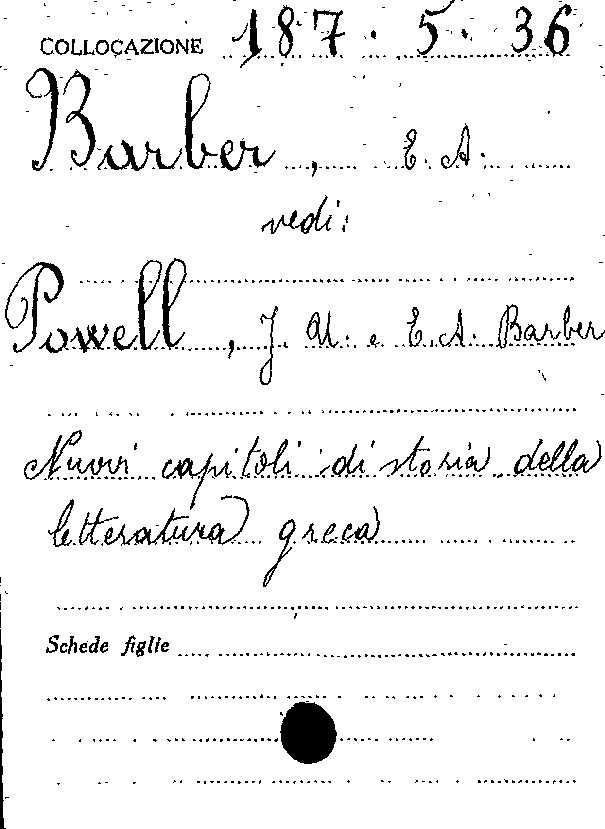 COLLOCAZIONE 187. 5. 36
Barber, E. A.
vedi:
Powell, J. U. e E. A. Barber
Nuovi capitoli di storia della
letteratura greca
Schede figlie